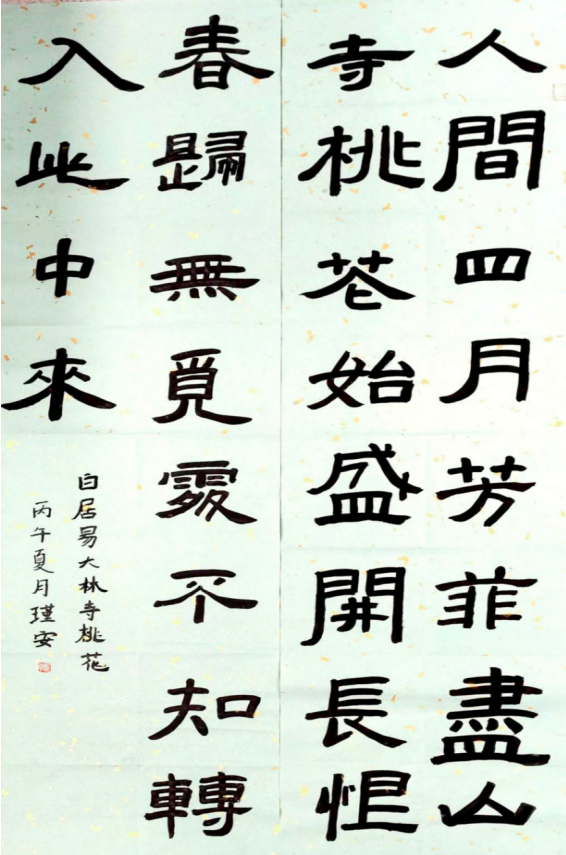 人間四月芳菲盡山
寺桃花始盛開長恨
春歸無覓處不知轉
入此中來
白居易大林寺桃花
丙午夏月瑾安